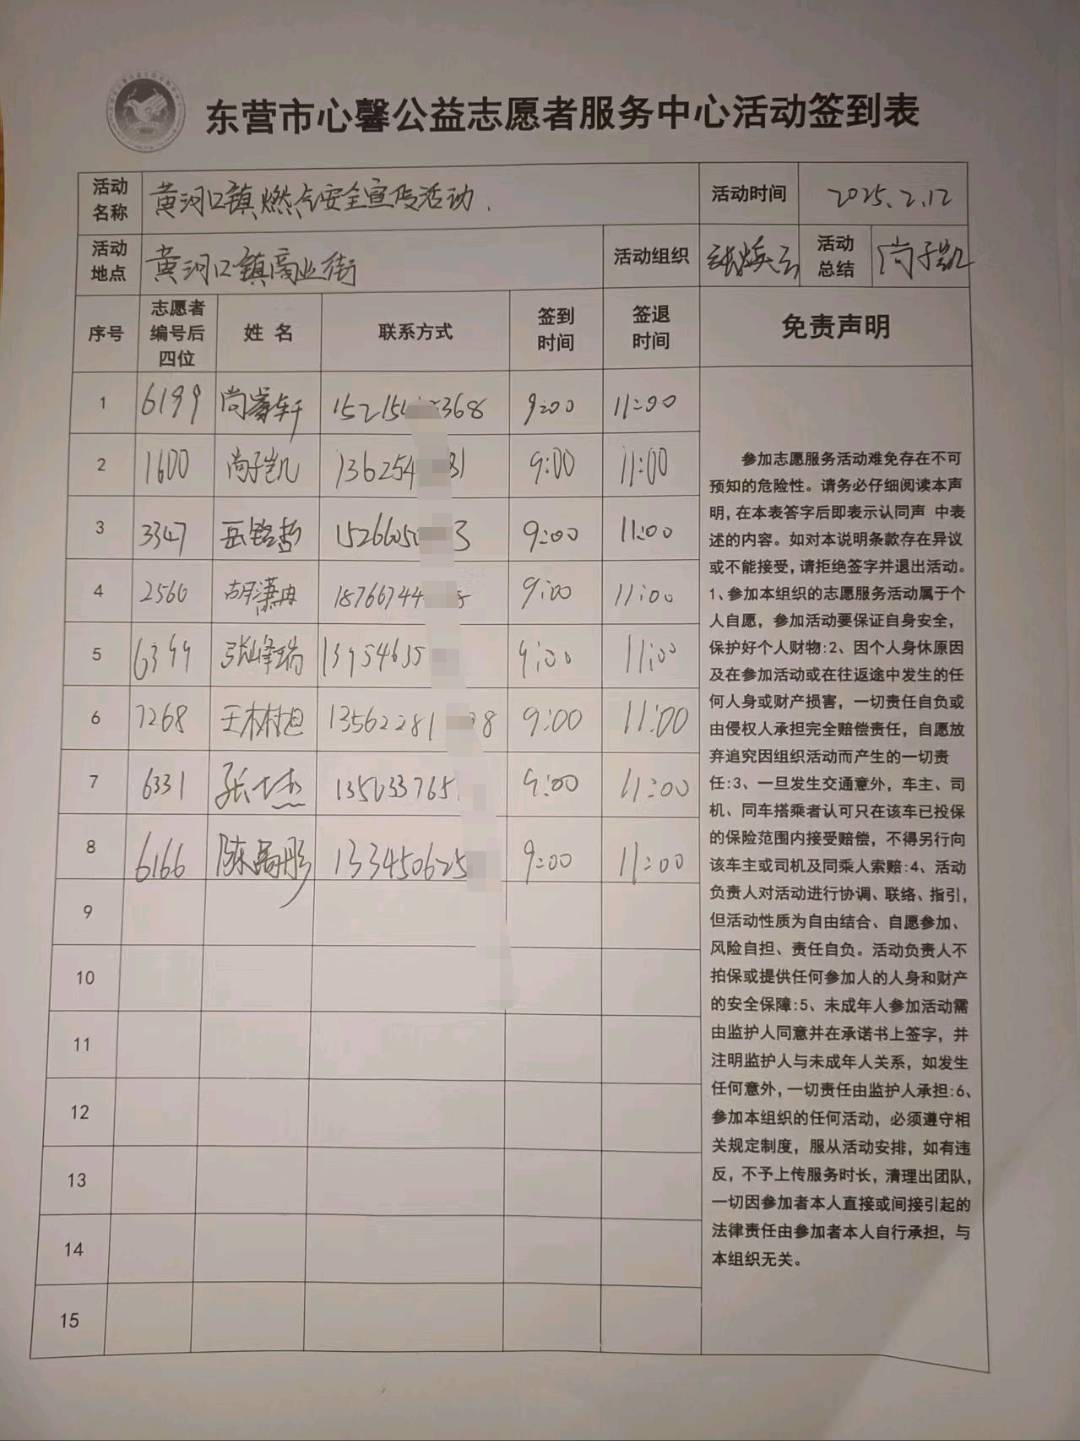 东营市心馨公益志愿者服务中心活动签到表
活动名称 黄河口镇燃气安全宣传活动. 活动时间 2025.2.12
活动地点 黄河口镇商业街 活动组织 活动总结 尚子凯
序号 志愿者编号后四位 姓 名 联系方式 签到时间 签退时间 免责声明
1 6199 15215 368 9:00 11:00
2 1600 尚子凯 136254 31 9:00 11:00
3 3347 岳铭哲 1526605 3 9:00 11:00
4 2560 胡潇冉 18766744 9:00 11:00
5 6399 张峰瑞 13954635 9:00 11:00
6 7268 13562281 8 9:00 11:00
7 6331 135 33765 9:00 11:00
8 6166 133450625 9:00 11:00
9
10
11
12
13
14
15
参加志愿服务活动难免存在不可
预知的危险性。请务必仔细阅读本声
明,在本表答字后即表示认同声 中表
述的内容。如对本说明条款存在异议
或不能接受,请拒绝签字并退出活动。
1、参加本组织的志愿服务活动属于个
人自愿,参加活动要保证自身安全,
保护好个人财物:2、因个人身休原因
及在参加活动或在往返途中发生的任
何人身或财产损害,一切责任自负或
由侵权人承担完全赔偿责任,自愿放
弃追究因组织活动而产生的一切责
任:3、一旦发生交通意外,车主、司
机、同车搭乘者认可只在该车已投保
的保险范围内接受赔偿,不得另行向
该车主或司机及同乘人索赔:4、活动
负责人对活动进行协调、联络、指引,
但活动性质为自由结合、自愿参加、
风险自担、责任自负。活动负责人不
拍保或提供任何参加人的人身和财产
的安全保障:5、未成年人参加活动需
由监护人同意并在承诺书上签字,并
注明监护人与未成年人关系,如发生
任何意外,一切责任由监护人承担:6、
参加本组织的任何活动,必须遵守相
关规定制度,服从活动安排,如有违
反,不予上传服务时长,清理出团队,
一切因参加者本人直接或间接引起的
法律责任由参加者本人自行承担,与
本组织无关。